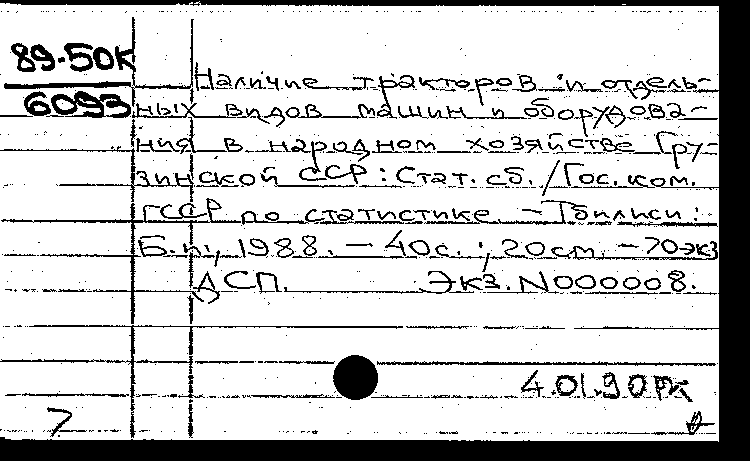 89-50К
6093
Наличие тракторов и отдель-
ных видов машин и оборудова-
ния в народном хозяйстве Гру-
зинской ССР: Стат. сб. / Гос. ком.
ГССР по статистике. - Тбилиси:
Б.и., 1988. - 40с.; 20см. - 70экз
ДСП. Экз. N000008.
4.01.90РК